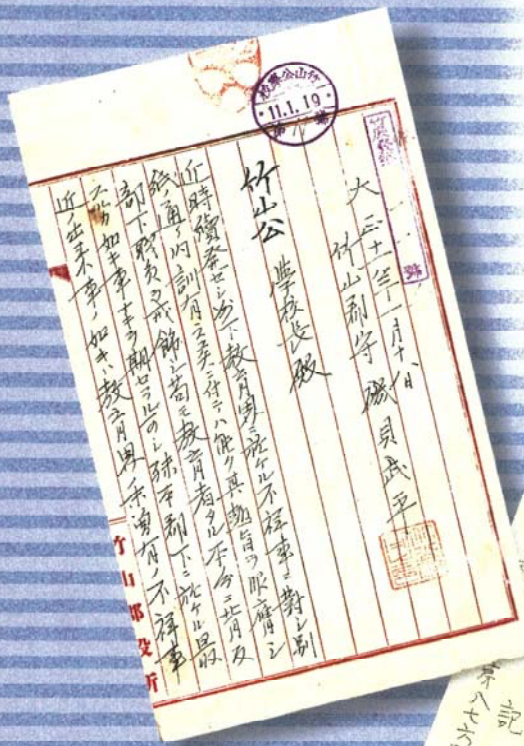 竹山公學校
11.1.19
大正十一年一月十八日
竹山郡守 磯貝武平
竹山公 學校長殿
近時續發セシ州下教育界ニ於ケル不祥事ニ對シ別
紙通リ內訓有之候ニ付テハ能ク其趣旨ヲ服膺シ
部下職員ヲ戒飭シ苟モ教育者タル本分ニ背反
スルカ如キ事ナキヲ期セラルヘシ殊ニ本郡下ニ於ケル最
近ノ出來事ノ如キハ教育界未曾有ノ不祥事
竹山郡役所
記